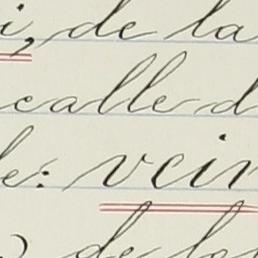 i, de la
calle d
le: vein
de la